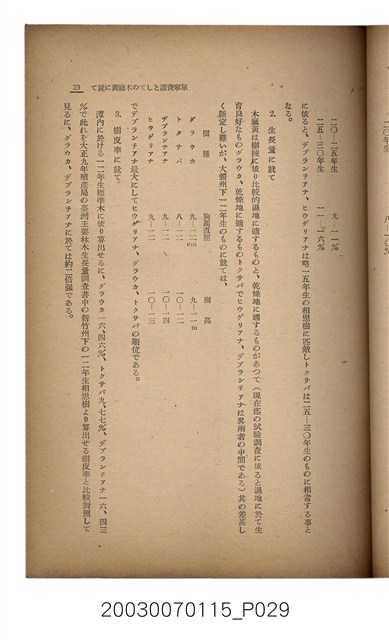 て就に黄麻木のてしと源資査調 23
二〇—二五年生　九—一一%
二五—三〇年生　一一—一六%
に依ると、デプランチアナ、ヒウゲリアナは略一五年生の相思樹に匹敵しトクサバは二五—三〇年生のものに相當する事と
なる。
2. 生長量に就て
木麻黄は樹種に依り比較的濕地に適するものと、乾燥地に適するものがあつて（現在迄の試驗調査に依ると濕地に於て生
育良好なものグラウカ、乾燥地に適するものトクサバでヒウゲリアナ、デプランチアナは異兩者の中間である）其の差甚し
く斷定し難いが、大體州下一二年生のものに就ては、
樹種　胸高直徑　樹高
グラウカ　九—一二cm　九—一一m
トクサバ　八—一二　一〇—一二
デプランチアナ　九—一二　一〇—一四
ヒウゲリアナ　九—一二　一〇—一三
でデプランチアナ最大にしてヒウゲリアナ、グラウカ、トクサバの順位である。
3. 樹皮率に就て
澤內に於ける一二年生標準木に依り算出せるに、グラウカ一六、四六%、トクサバ九、七七%、デプランチアナ一六、四三
%で此れを大正九年殖產局の臺灣主要林木生長量調查書中の新竹州下の一二年生相思樹より算出せる樹皮率と比較對照して
見るに、グラウカ、デプランチアナに於ては約二倍强である。
20030070115_P029